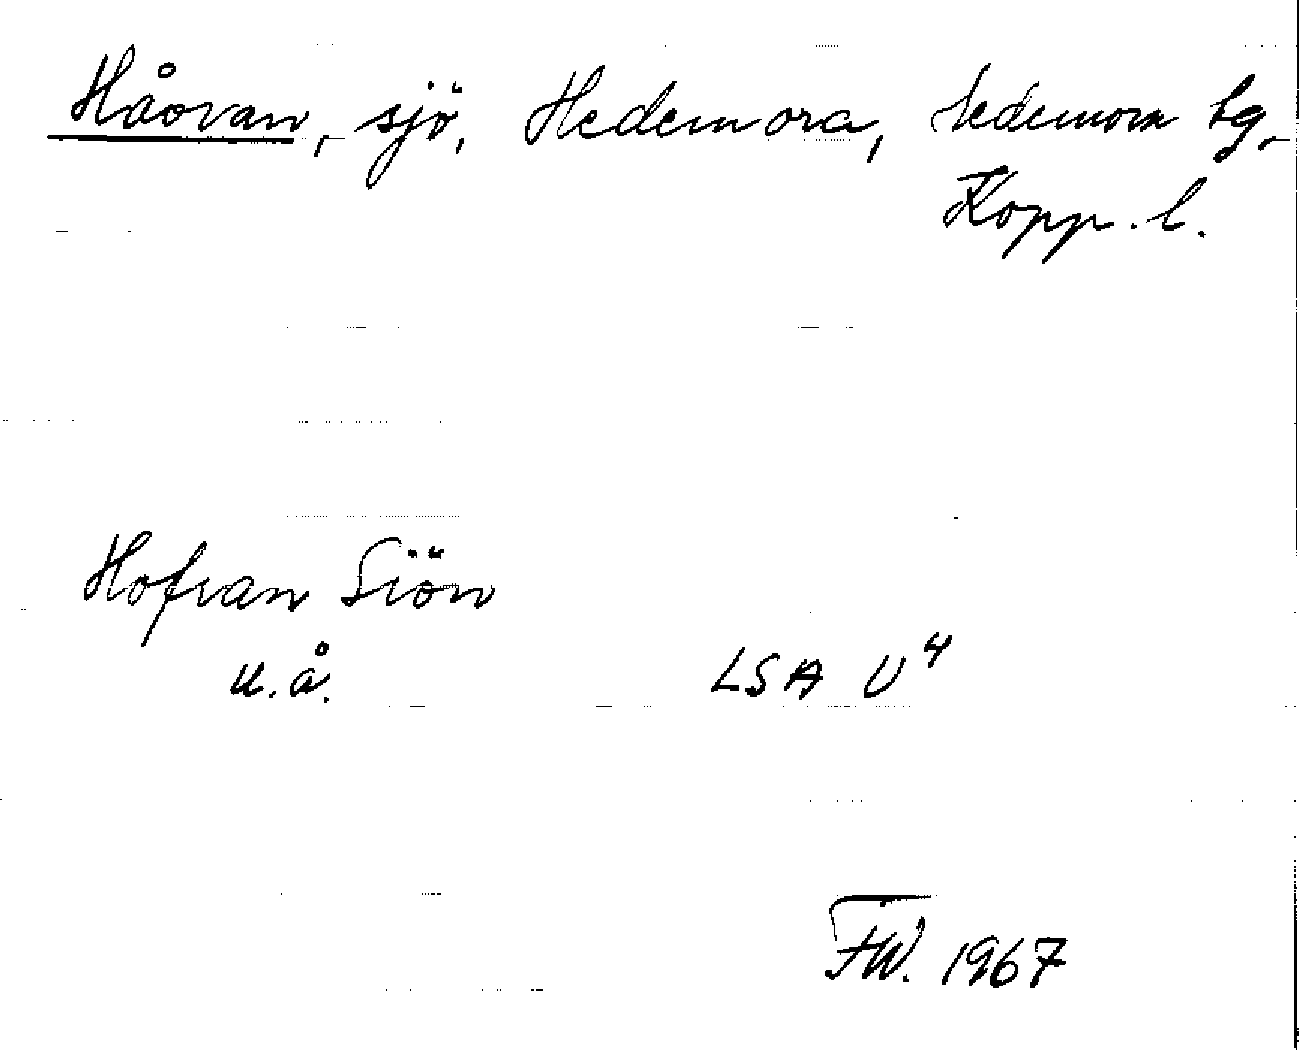 Håovan, sjö, Hedemora, Hedemora tg,
Kopp. l.
Hofvan Siön
u.å. LSA U4
FW. 1967